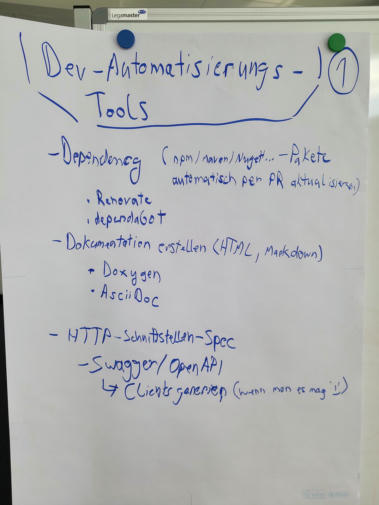 Legamaster
Dev-Automatisierungs-
Tools
1
- Dependency (npm/maven/Nugett... - Pakete
automatisch per PR aktualisieren)
• Renovate
• dependabot
- Dokumentation erstellen (HTML, Markdown)
• Doxygen
• AsciiDoc
- HTTP-Schnittstellen-Spec
- Swagger/OpenAPI
↳ Clients generieren (wenn man es mag !)